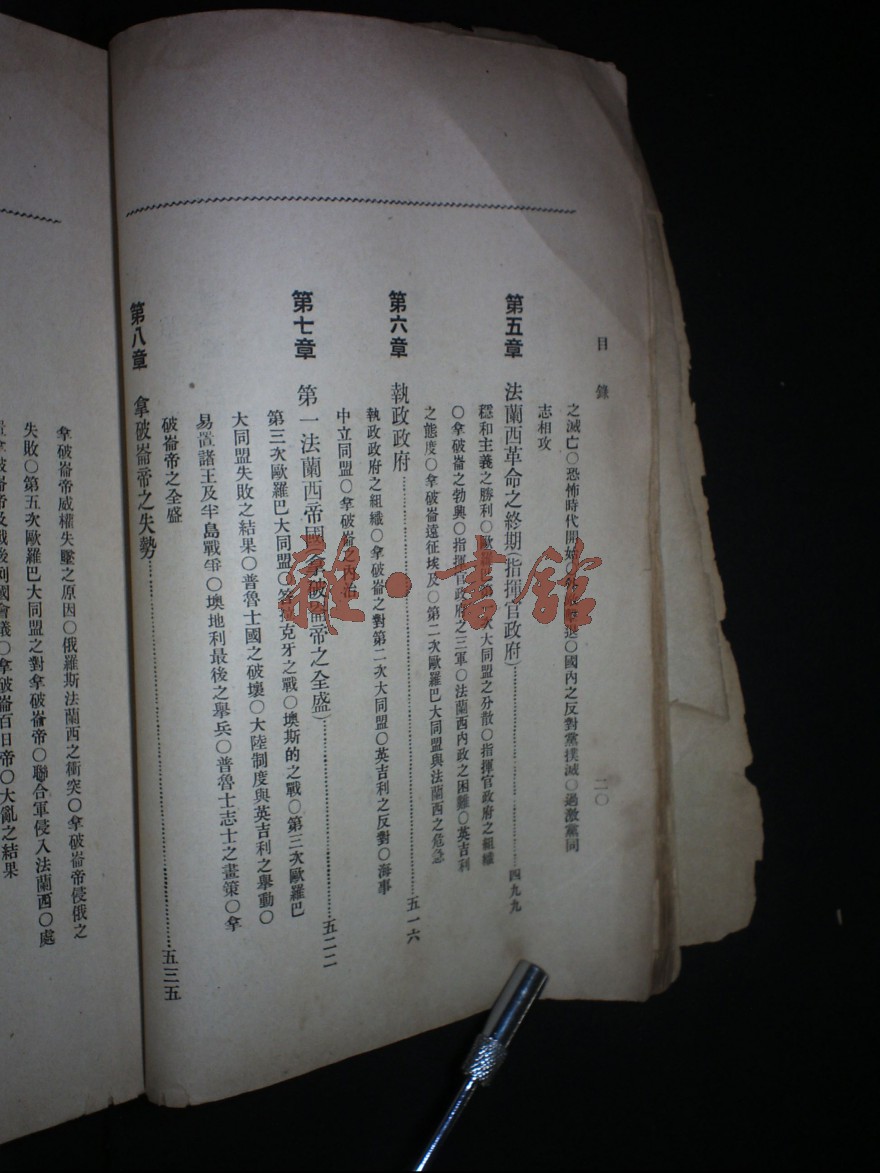 目錄
二〇
之滅亡〇恐怖時代開始〇〇國內之反對黨撲滅〇過激黨同
志相攻
第五章 法蘭西革命之終期(指揮官政府)……四九九
穩和主義之勝利〇歐羅巴第一次大同盟之分散〇指揮官政府之組織
〇拿破崙之勃興〇指揮官政府之三軍〇法蘭西內政之困難〇英吉利
之態度〇拿破崙遠征埃及〇第二次歐羅巴大同盟與法蘭西之危急
第六章 執政政府……五一六
執政政府之組織〇拿破崙之對第二次大同盟〇英吉利之反對〇海事
中立同盟〇拿破崙之內治
第七章 第一法蘭西帝國(拿破崙帝之全盛)……五二二
第三次歐羅巴大同盟〇答拉克牙之戰〇墺斯的之戰〇第三次歐羅巴
大同盟失敗之結果〇普魯士國之破壞〇大陸制度與英吉利之舉動〇
易置諸王及半島戰爭〇墺地利最後之舉兵〇普魯士志士之畫策〇拿
破崙帝之全盛
第八章 拿破崙帝之失勢……五三五
拿破崙帝威權失墜之原因〇俄羅斯法蘭西之衝突〇拿破崙帝侵俄之
失敗〇第五次歐羅巴大同盟之對拿破崙帝〇聯合軍侵入法蘭西〇處
置拿破崙帝及戰後列國會議〇拿破崙百日帝〇大亂之結果
雜·書館